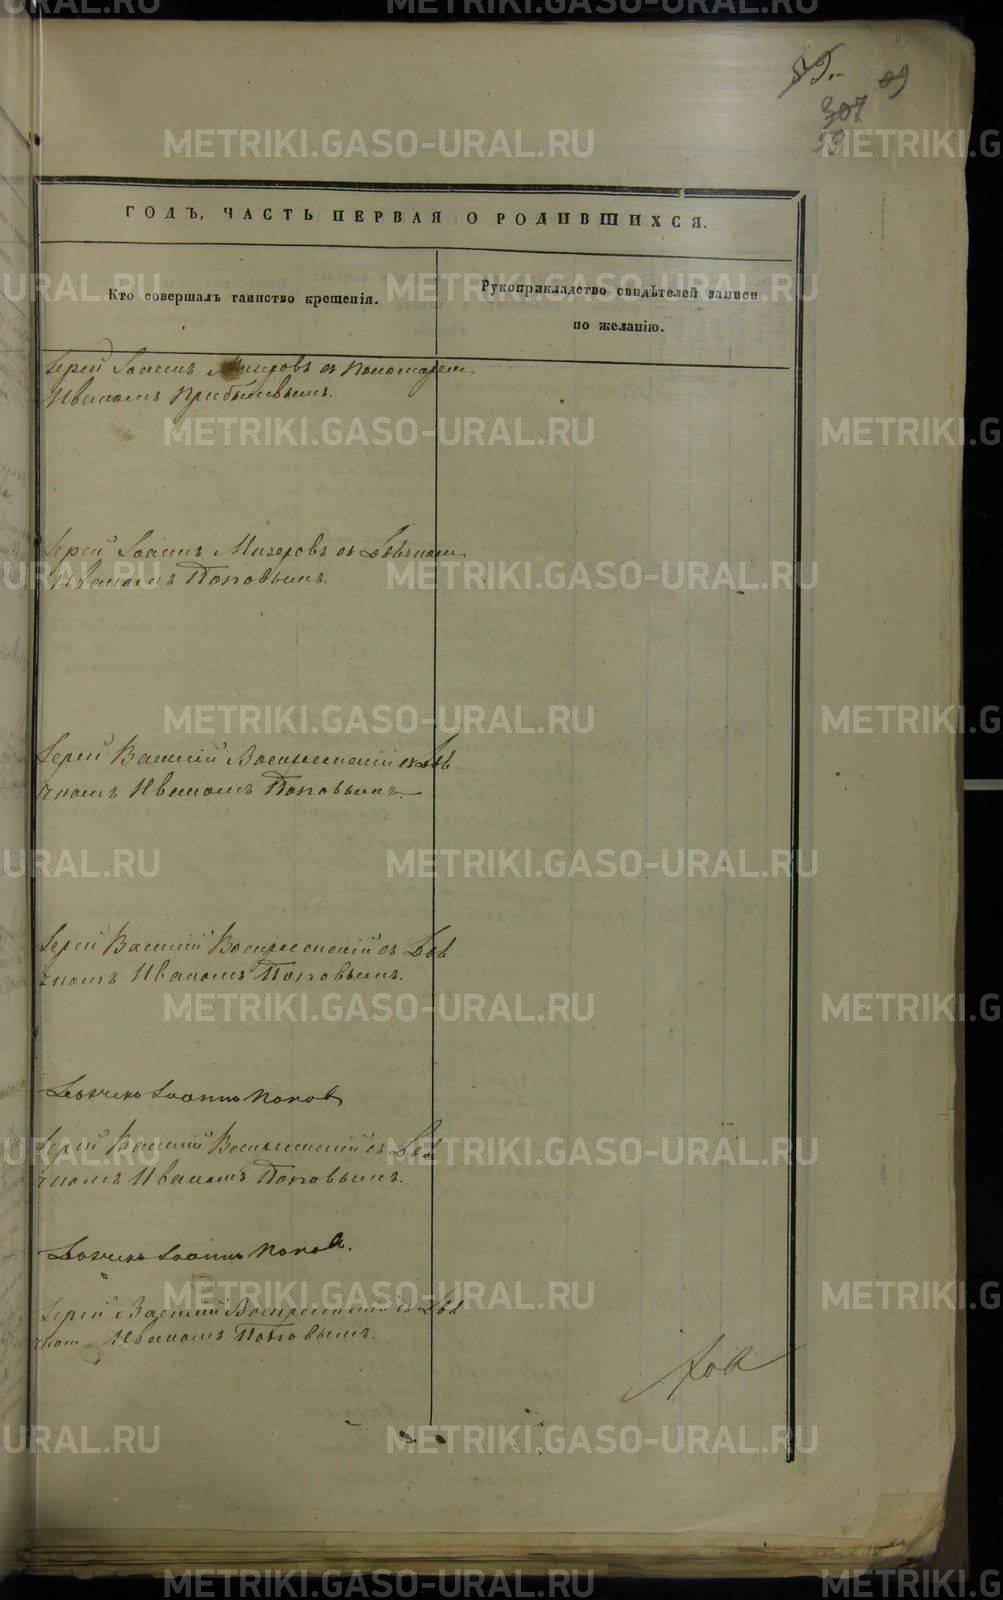 307
59
ГОДЪ, ЧАСТЬ ПЕРВАЯ О РОДИВШИХСЯ.
Кто совершалъ таинство крещенія.
Рукоприкладство свидѣтелей записи
по желанію.
Іерей Іоаннъ Мизеровъ съ Пономаремъ
Иваномъ Прибылевымъ.
Іерей Іоаннъ Мизеровъ съ Дьячкомъ
Иваномъ Поповымъ.
Іерей Василій Воскресенскій съ Дья-
чкомъ Иваномъ Поповымъ.
Іерей Василій Воскресенскій съ Дья
чкомъ Иваномъ Поповымъ.
Дьячекъ Іоаннъ Поповъ
Іерей Василій Воскресенскій съ Дья
чкомъ Иваномъ Поповымъ.
Дьячекъ Іоаннъ Поповъ.
Іерей Василій Воскресенскій съ Дья
чкомъ Иваномъ Поповымъ.
METRIKI.GASO-URAL.RU